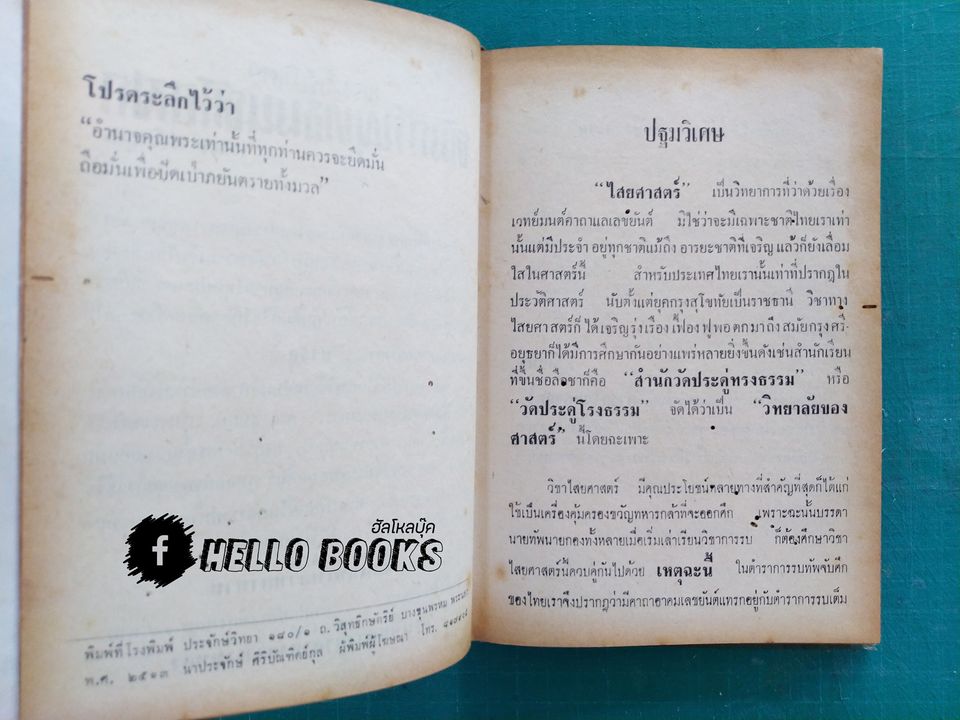 โปรดระลึกไว้ว่า
“อำนาจคุณพระเท่านั้นที่ทุกท่านควรจะยึดมั่น
ถือมั่นเพื่อปัดเป่าภยันตรายทั้งมวล”
ฮัลโหลบุ๊ค
f HELLO BOOKS
พิมพ์ที่โรงพิมพ์ ประจักษ์วิทยา ๑๘๐/๑ ถ.วิสุทธกษัตริย์ บางขุนพรหม
พ.ศ. ๒๕๑๓ นายประจักษ์ ศิริบัณฑิตย์กุล ผู้พิมพ์ผู้โฆษณา โทร.
ปฐมวิเศษ
“ไสยศาสตร์” เป็นวิทยาการที่ว่าด้วยเรื่อง
เวทย์มนต์คาถาแลเลขยันต์ มิใช่ว่าจะมีเฉพาะชาติไทยเราเท่า
นั้นแต่มีประจำ อยู่ทุกชาติแม้ถึง อารยะชาติที่เจริญ แล้วก็ยังเลื่อม
ใสในศาสตร์นี้ สำหรับประเทศไทยเรานั้นเท่าที่ปรากฏใน
ประวัติศาสตร์ นับตั้งแต่ยุคกรุงสุโขทัยเป็นราชธานี วิชาทาง
ไสยศาสตร์ก็ ได้ เจริญรุ่งเรือง เฟื่อง ฟูพอ ตกมาถึง สมัยกรุงศรี-
อยุธยาก็ได้มีการศึกษากันอย่างแพร่หลายยิ่งขึ้นดังเช่นสำนักเรียน
ที่ขึ้นชื่อลือชาก็คือ “สำนักวัดประดู่ทรงธรรม” หรือ
“วัดประดู่โรงธรรม” จัดได้ว่าเป็น “วิทยาลัยของ
ศาสตร์” นี้โดยฉะเพาะ
วิชาไสยศาสตร์ มีคุณประโยชน์หลายทางที่สำคัญที่สุดก็ได้แก่
ใช้เป็นเครื่องคุ้มครองขวัญทหารกล้าที่จะออกศึก เพราะฉะนั้นบรรดา
นายทัพนายกองทั้งหลายเมื่อเริ่มเล่าเรียนวิชาการรบ ก็ต้องศึกษาวิชา
ไสยศาสตร์นี้ควบคู่กันไปด้วย เหตุฉะนี้ ในตำราการรบทัพจับศึก
ของไทยเราจึงปรากฏว่ามีคาถาอาคมเลขยันต์แทรกอยู่กับตำราการรบเต็ม